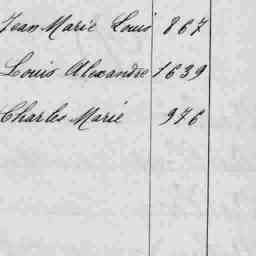 Jean Marie Louis 867
Louis Alexandre 1639
Charles Marie 976